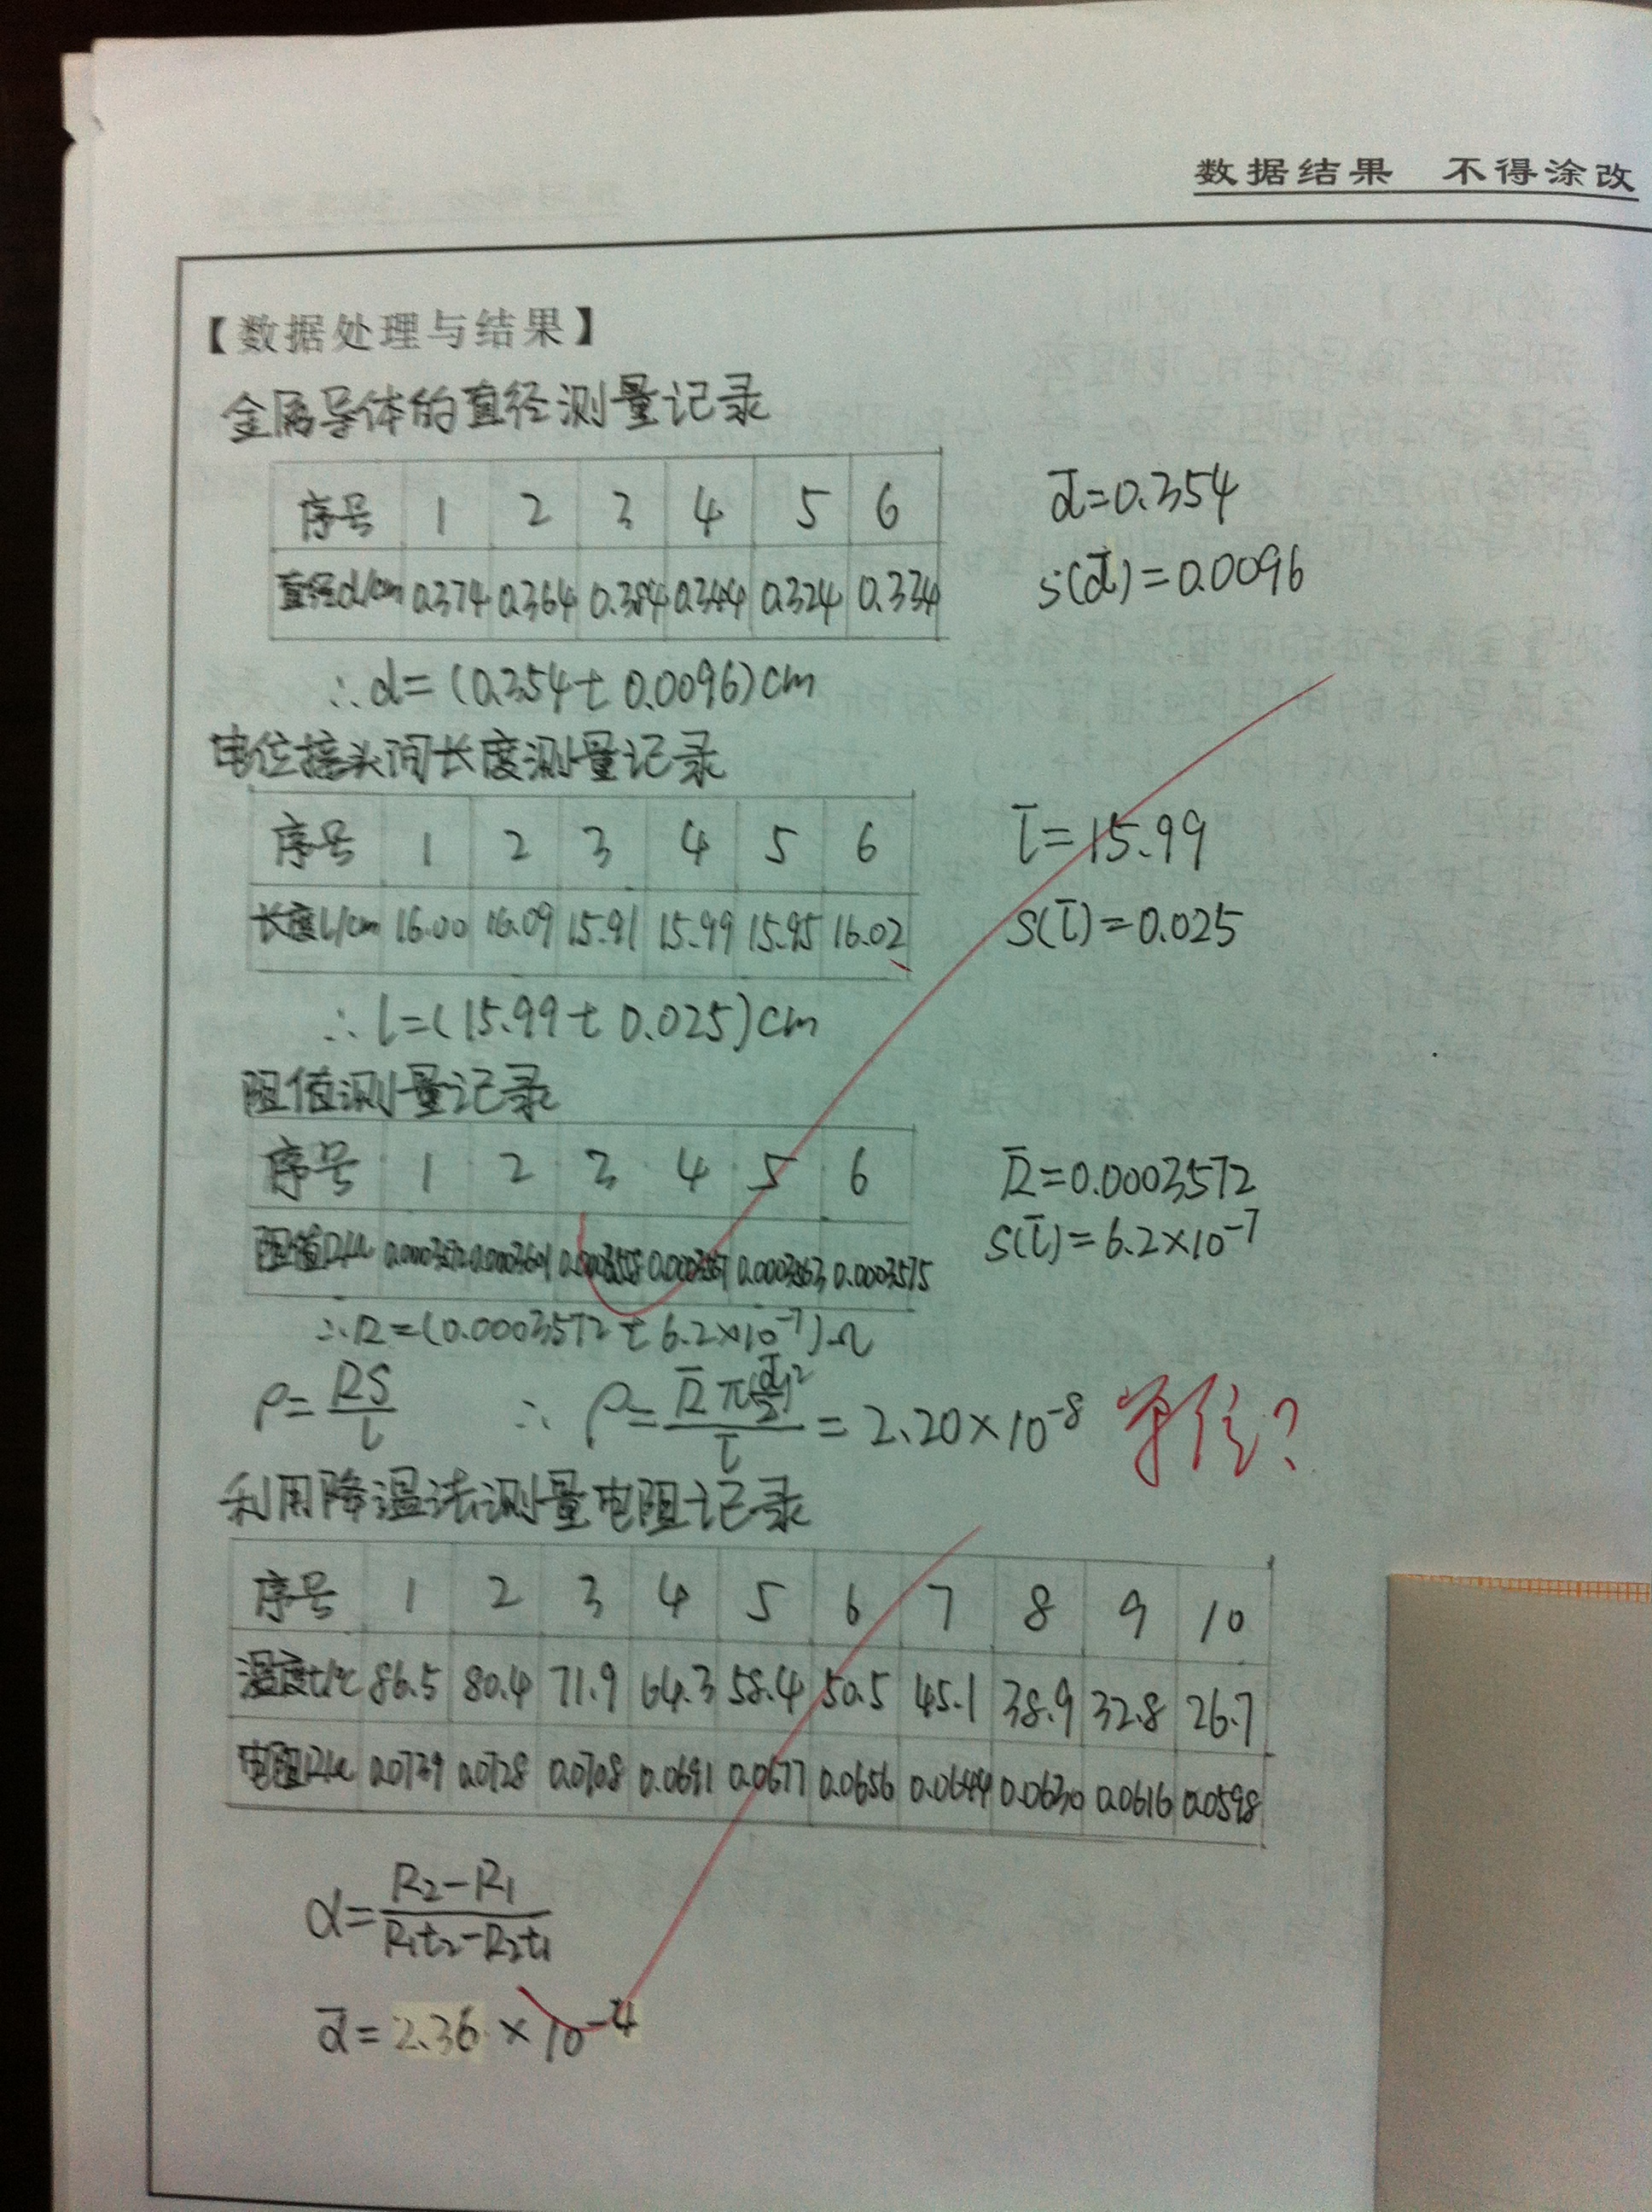 数据结果 不得涂改
【数据处理与结果】
金属导体的直径测量记录
序号 1 2 3 4 5 6
直径d/cm 0.374 0.364 0.384 0.344 0.324 0.334
d̄=0.354
s(d̄)=0.0096
∴d=(0.354±0.0096)cm
电位接头间长度测量记录
序号 1 2 3 4 5 6
长度l/cm 16.00 16.09 15.91 15.99 15.95 16.02
l̄=15.99
s(l̄)=0.025
∴l=(15.99±0.025)cm
阻值测量记录
序号 1 2 3 4 5 6
阻值R/Ω 0.0003601 0.0003558 0.0003567 0.0003575
R̄=0.0003572
s(l̄)=6.2×10⁻⁷
∴R=(0.0003572±6.2×10⁻⁷)Ω
ρ=RS/l ∴ρ=R̄π(d̄/2)²/l̄=2.20×10⁻⁸ 单位?
利用降温法测量电阻记录
序号 1 2 3 4 5 6 7 8 9 10
温度t/℃ 86.5 80.4 71.9 64.3 58.4 50.5 45.1 38.9 32.8 26.7
电阻R/Ω 0.0739 0.0728 0.0708 0.0691 0.0677 0.0656 0.0644 0.0630 0.0616 0.0598
α=(R₂-R₁)/(R₁t₂-R₂t₁)
ᾱ=2.36×10⁻⁴